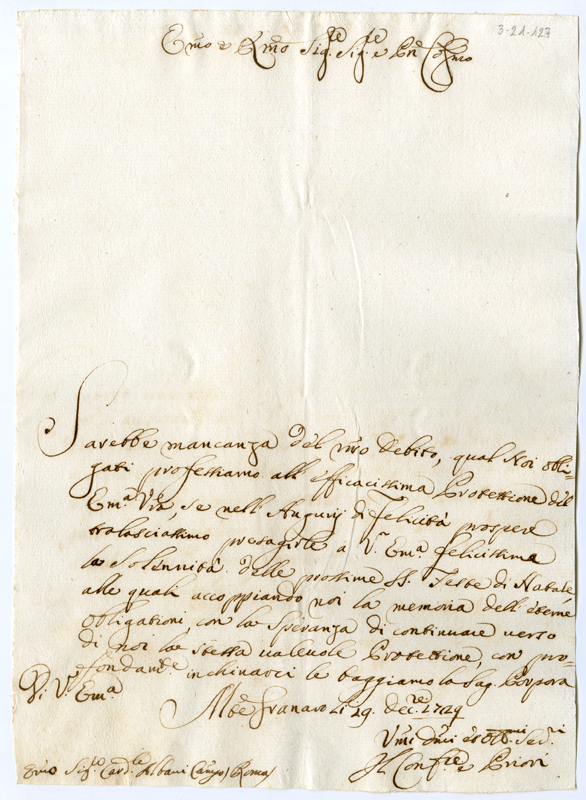 3-21-127
Emo e Rmo Sig.re Sig.re e Pn Colmo
Sarebbe mancanza del nro debito, qual Noi obli-
gati professiamo all efficacissima Protettione dell
Em.a Vra, se nell Augurij di Felicità prospere
tralasciassimo presagirle a V. Em.a felicissima
la Solennità delle prossime SS. Feste di Natale
alle quali accoppiando noi la memoria dell eterne
obligationi, con la speranza di continuare verso
di noi la stessa valevole Protettione, con pro-
fondam.te inchinarci le baggiamo la Sag. Porpora
Di V. Em.a
li 29. Dec.re 1729
Il Conf.re e Priori
Emo Sig.re Card.le Albani Roma